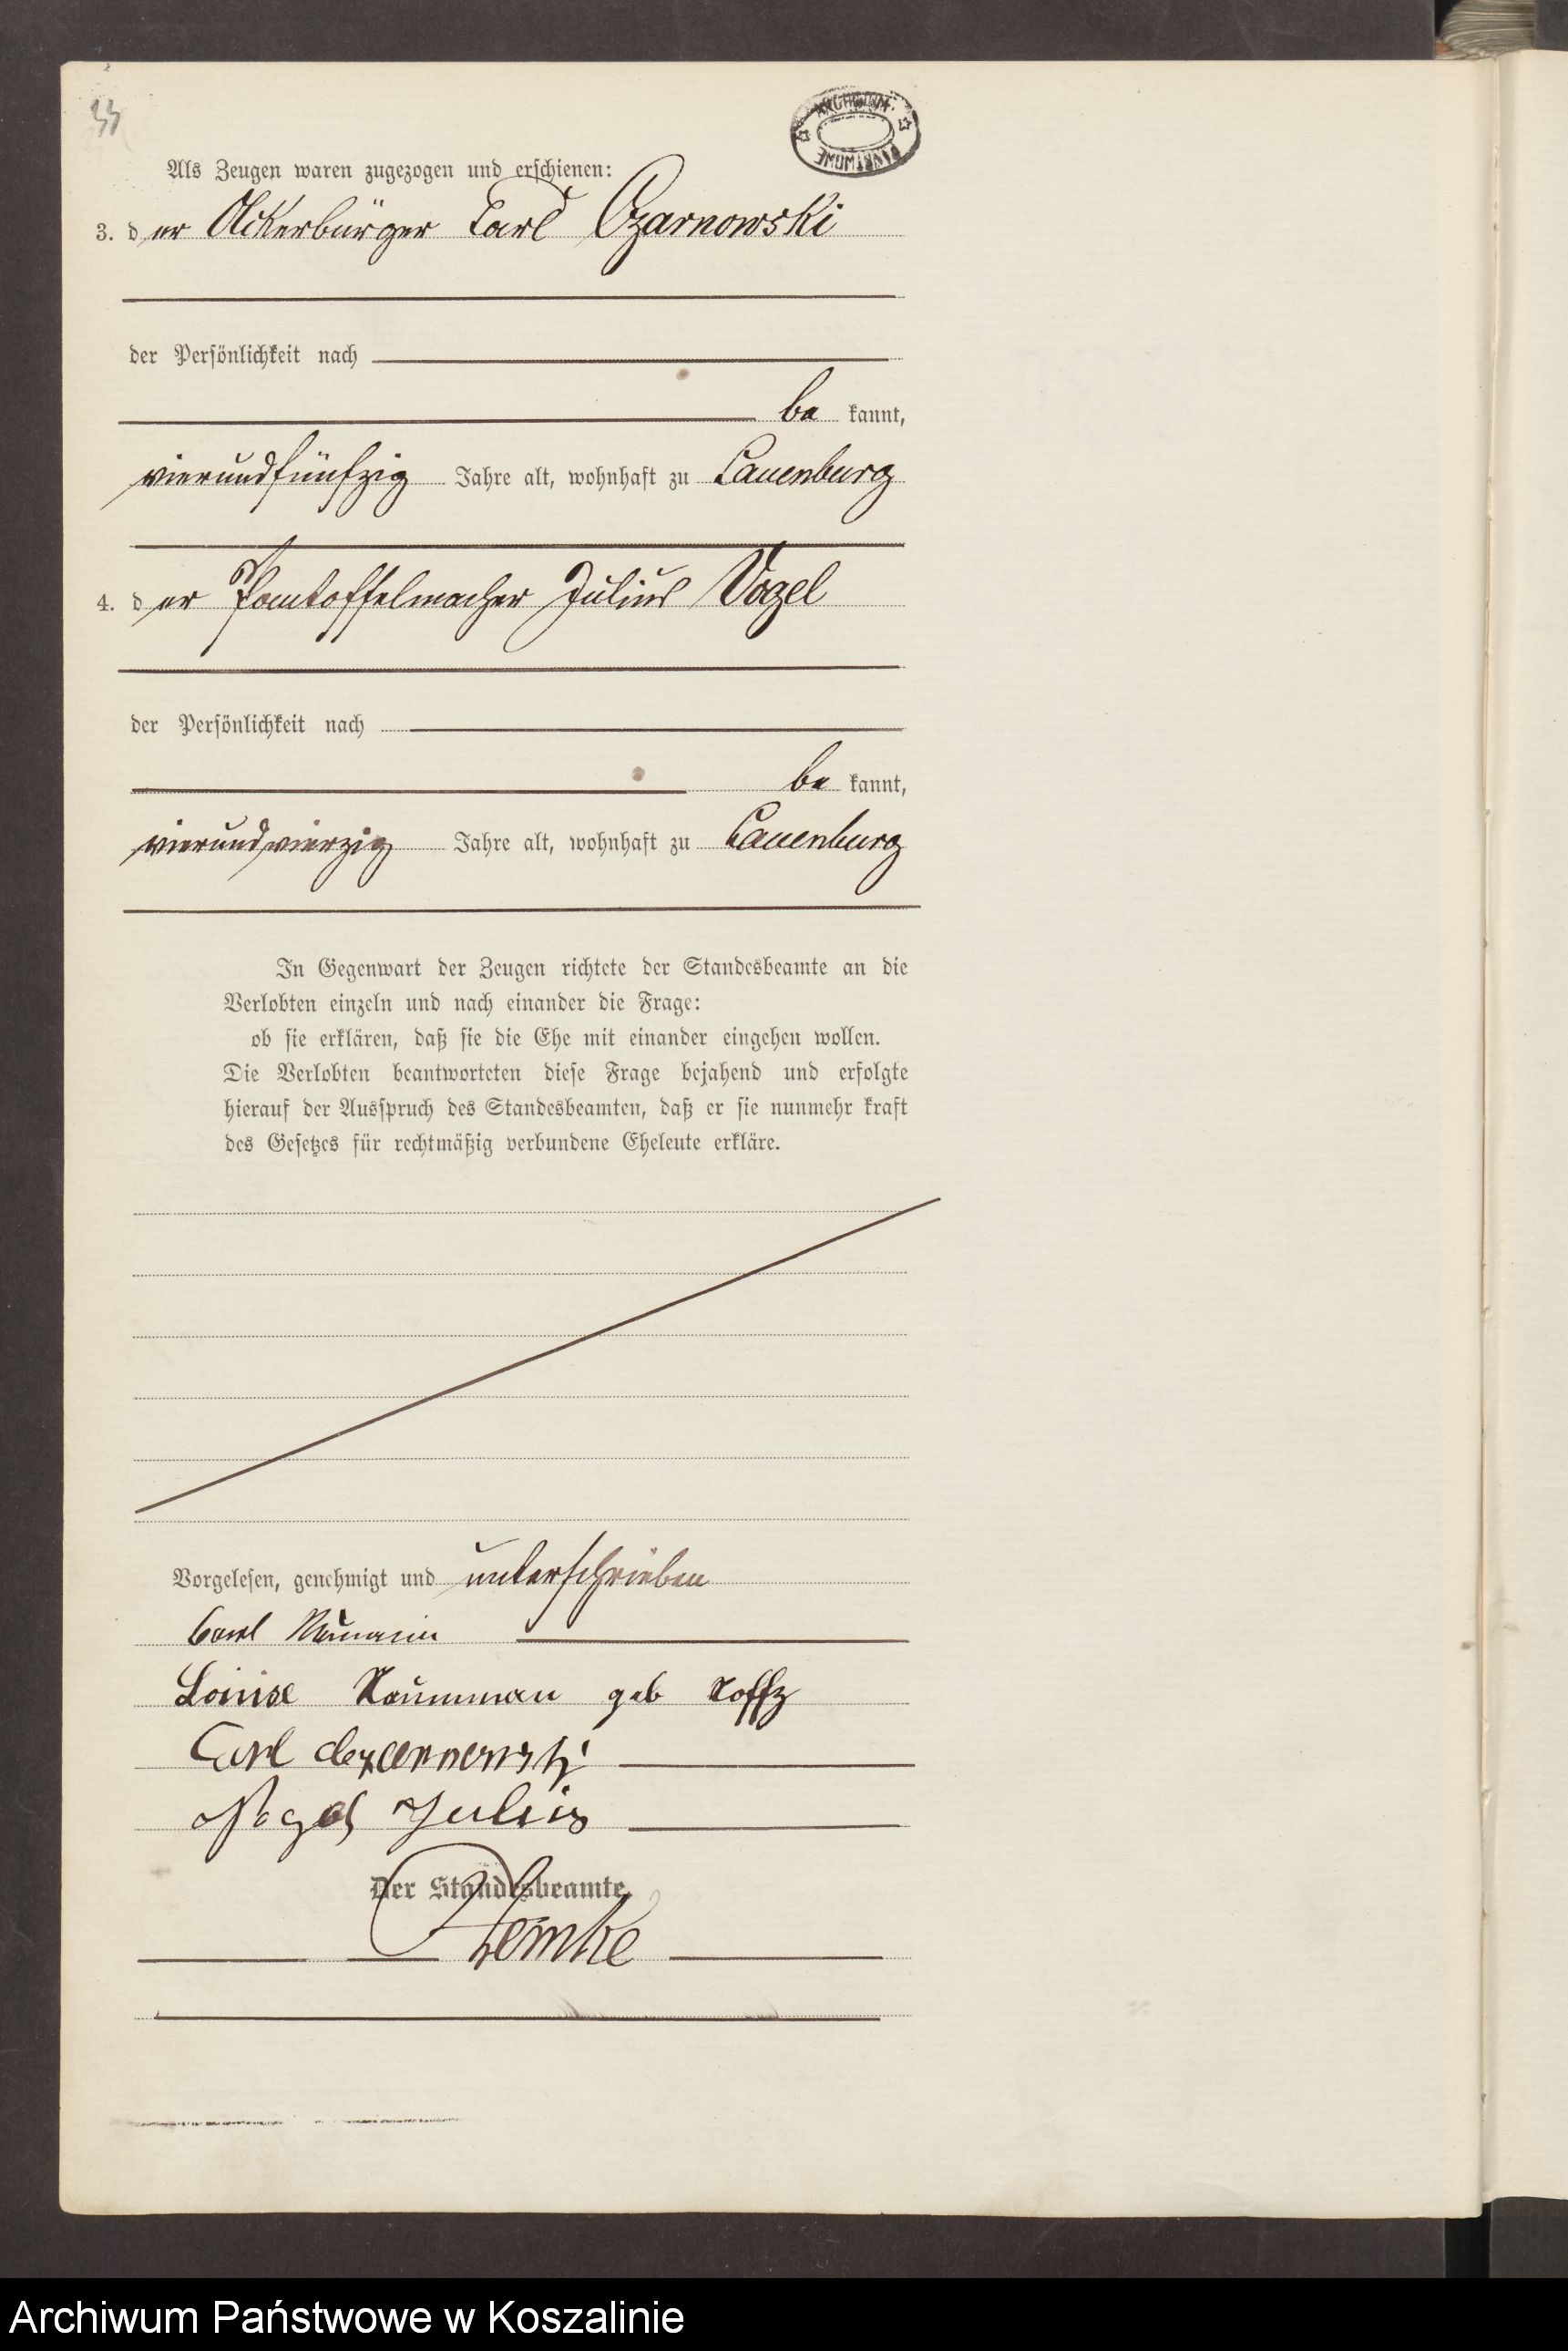 33
ARCHIWUM
PAŃSTWOWE
Als Zeugen waren zugezogen und erschienen:
3. der Ackerbürger Carl Czarnowski
der Persönlichkeit nach
be kannt,
vierundfünfzig Jahre alt, wohnhaft zu Lauenburg
4. der Pantoffelmacher Julius Vogel
der Persönlichkeit nach
be kannt,
vierundvierzig Jahre alt, wohnhaft zu Lauenburg
In Gegenwart der Zeugen richtete der Standesbeamte an die
Verlobten einzeln und nach einander die Frage:
ob sie erklären, daß sie die Ehe mit einander eingehen wollen.
Die Verlobten beantworteten diese Frage bejahend und erfolgte
hierauf der Ausspruch des Standesbeamten, daß er sie nunmehr kraft
des Gesetzes für rechtmäßig verbundene Eheleute erkläre.
Vorgelesen, genehmigt und unterschrieben
Carl
Louise geb
Carl
Vogel Julius
Der Standesbeamte.
Zemke
Archiwum Państwowe w Koszalinie